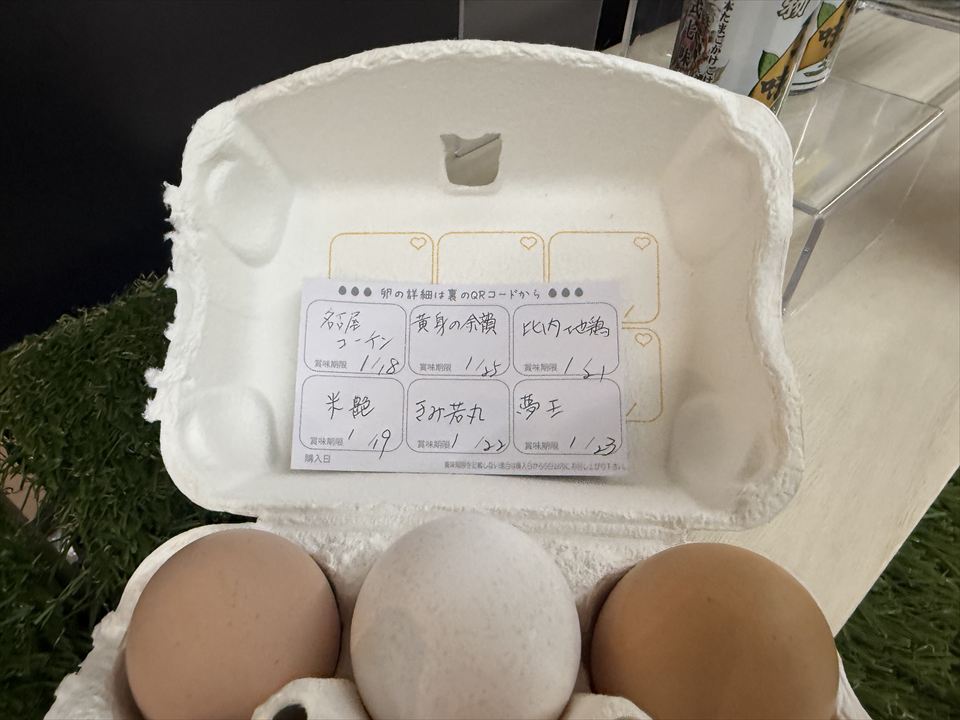 本たまごかけごは
味
●●● 卵の詳細は裏のQRコードから ●●●
名古屋
コーチン
賞味期限 1/18
黄身の余韻
賞味期限 1/25
比内地鶏
賞味期限 1/21
米艶
賞味期限 1/19
きみ若丸
賞味期限 1/22
夢王
賞味期限 1/23
購入日